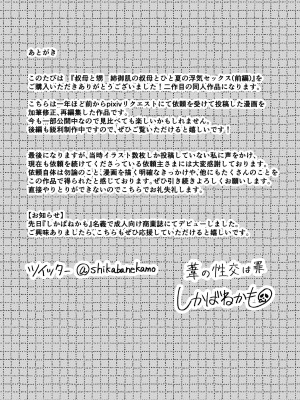 あとがき
このたびは『叔母と甥 姉御肌の叔母とひと夏の浮気セックス(前編)』を
ご購入いただきありがとうございました！二作目の同人作品になります。
こちらは一年ほど前からpixivリクエストにて依頼を受けて投稿した漫画を
加筆修正、再編集した作品です。
今も一部公開中なので見比べても楽しいかもしれません。
後編も鋭利制作中ですので、ぜひご覧いただけると嬉しいです！
最後になりますが、当時イラスト数枚しか投稿していない私に声をかけ、
現在も依頼を続けてくださっている依頼主さまには大変感謝しております。
依頼自体は勿論のこと、漫画を描く明確なきっかけや、他にもたくさんのことを
この作品で得られたと感じております。ぜひ引き続きよろしくお願いします。
直接やりとりができないのでこちらでお礼失礼します。
【お知らせ】
先日『しかばねかも』名義で成人向け商業誌にてデビューしました。
ご興味ありましたら、こちらもぜひ応援していただけると嬉しいです。
ツイッター @shikabanekamo
葦の性交は罪
しかばねかも